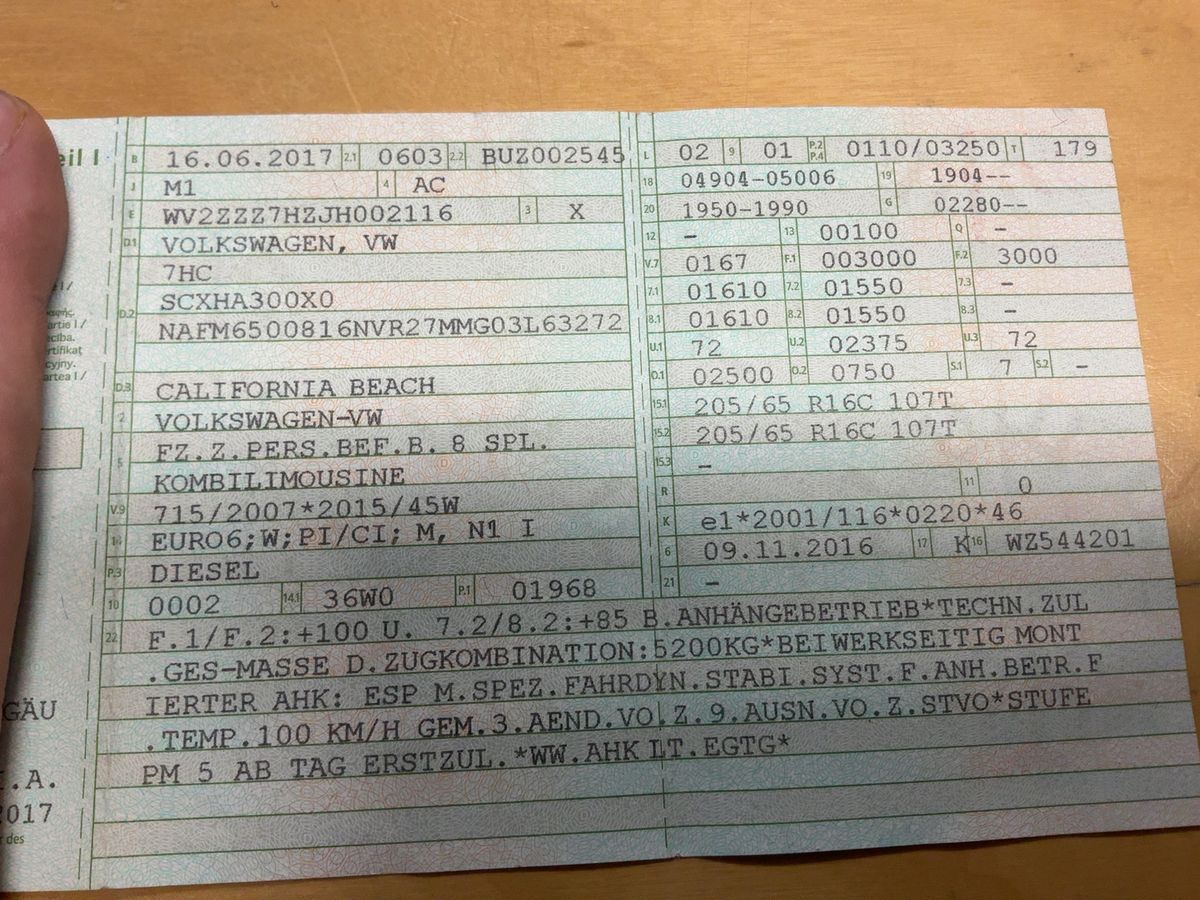 eil I
B 16.06.2017 2.1 0603 2.2 BUZ002545
J M1 4 AC
E WV2ZZZ7HZJH002116 3 X
D.1 VOLKSWAGEN, VW
7HC
D.2 SCXHA300X0
NAFM6500816NVR27MMG03L63272
D.3 CALIFORNIA BEACH
2 VOLKSWAGEN-VW
5 FZ.Z.PERS.BEF.B. 8 SPL.
KOMBILIMOUSINE
V.9 715/2007*2015/45W
14 EURO6;W;PI/CI; M, N1 I
P.3 DIESEL
10 0002 14.1 36W0 P.1 01968
L 02 9 01 P.2 P.4 0110/03250 T 179
18 04904-05006 19 1904--
20 1950-1990 G 02280--
12 - 13 00100 Q -
V.7 0167 F.1 003000 F.2 3000
7.1 01610 7.2 01550 7.3 -
8.1 01610 8.2 01550 8.3 -
U.1 72 U.2 02375 U.3 72
O.1 02500 O.2 0750 S.1 7 S.2 -
15.1 205/65 R16C 107T
15.2 205/65 R16C 107T
15.3 -
R 11 0
K e1*2001/116*0220*46
6 09.11.2016 17 K 16 WZ544201
21 -
22 F.1/F.2:+100 U. 7.2/8.2:+85 B.ANHÄNGEBETRIEB*TECHN.ZUL
.GES-MASSE D.ZUGKOMBINATION:5200KG*BEI WERKSEITIG MONT
IERTER AHK: ESP M.SPEZ.FAHRDYN.STABI.SYST.F.ANH.BETR.F
.TEMP.100 KM/H GEM.3.AEND.VO.Z.9.AUSN.VO.Z.STVO*STUFE
PM 5 AB TAG ERSTZUL.*WW.AHK LT.EGTG*
GÄU
.A.
2017
r des